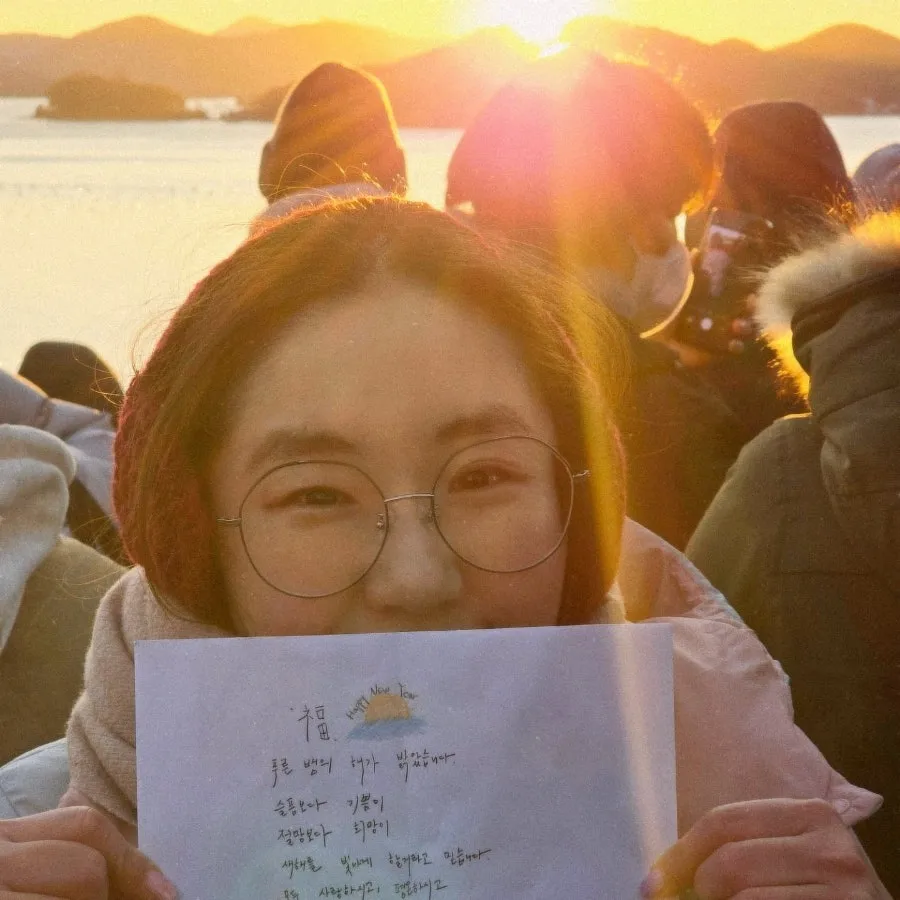 福
Happy New Year
푸른 뱀의 해가 밝았습니다
슬픔보다 기쁨이
절망보다 희망이
새해를 빛나게 할거라고 믿습니다.
모두 사랑하시고, 평온하시고